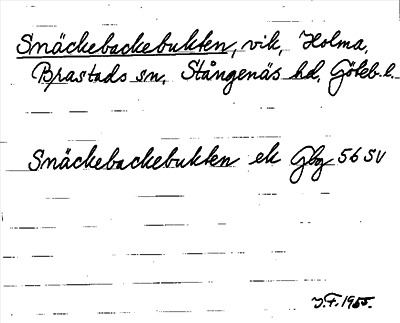 Snäckebackebukten, vik, Holma,
Brastads sn, Stångenäs hd, Göteb. l.
Snäckebackebukten ek Gbg 56 SV
J.F. 1955.